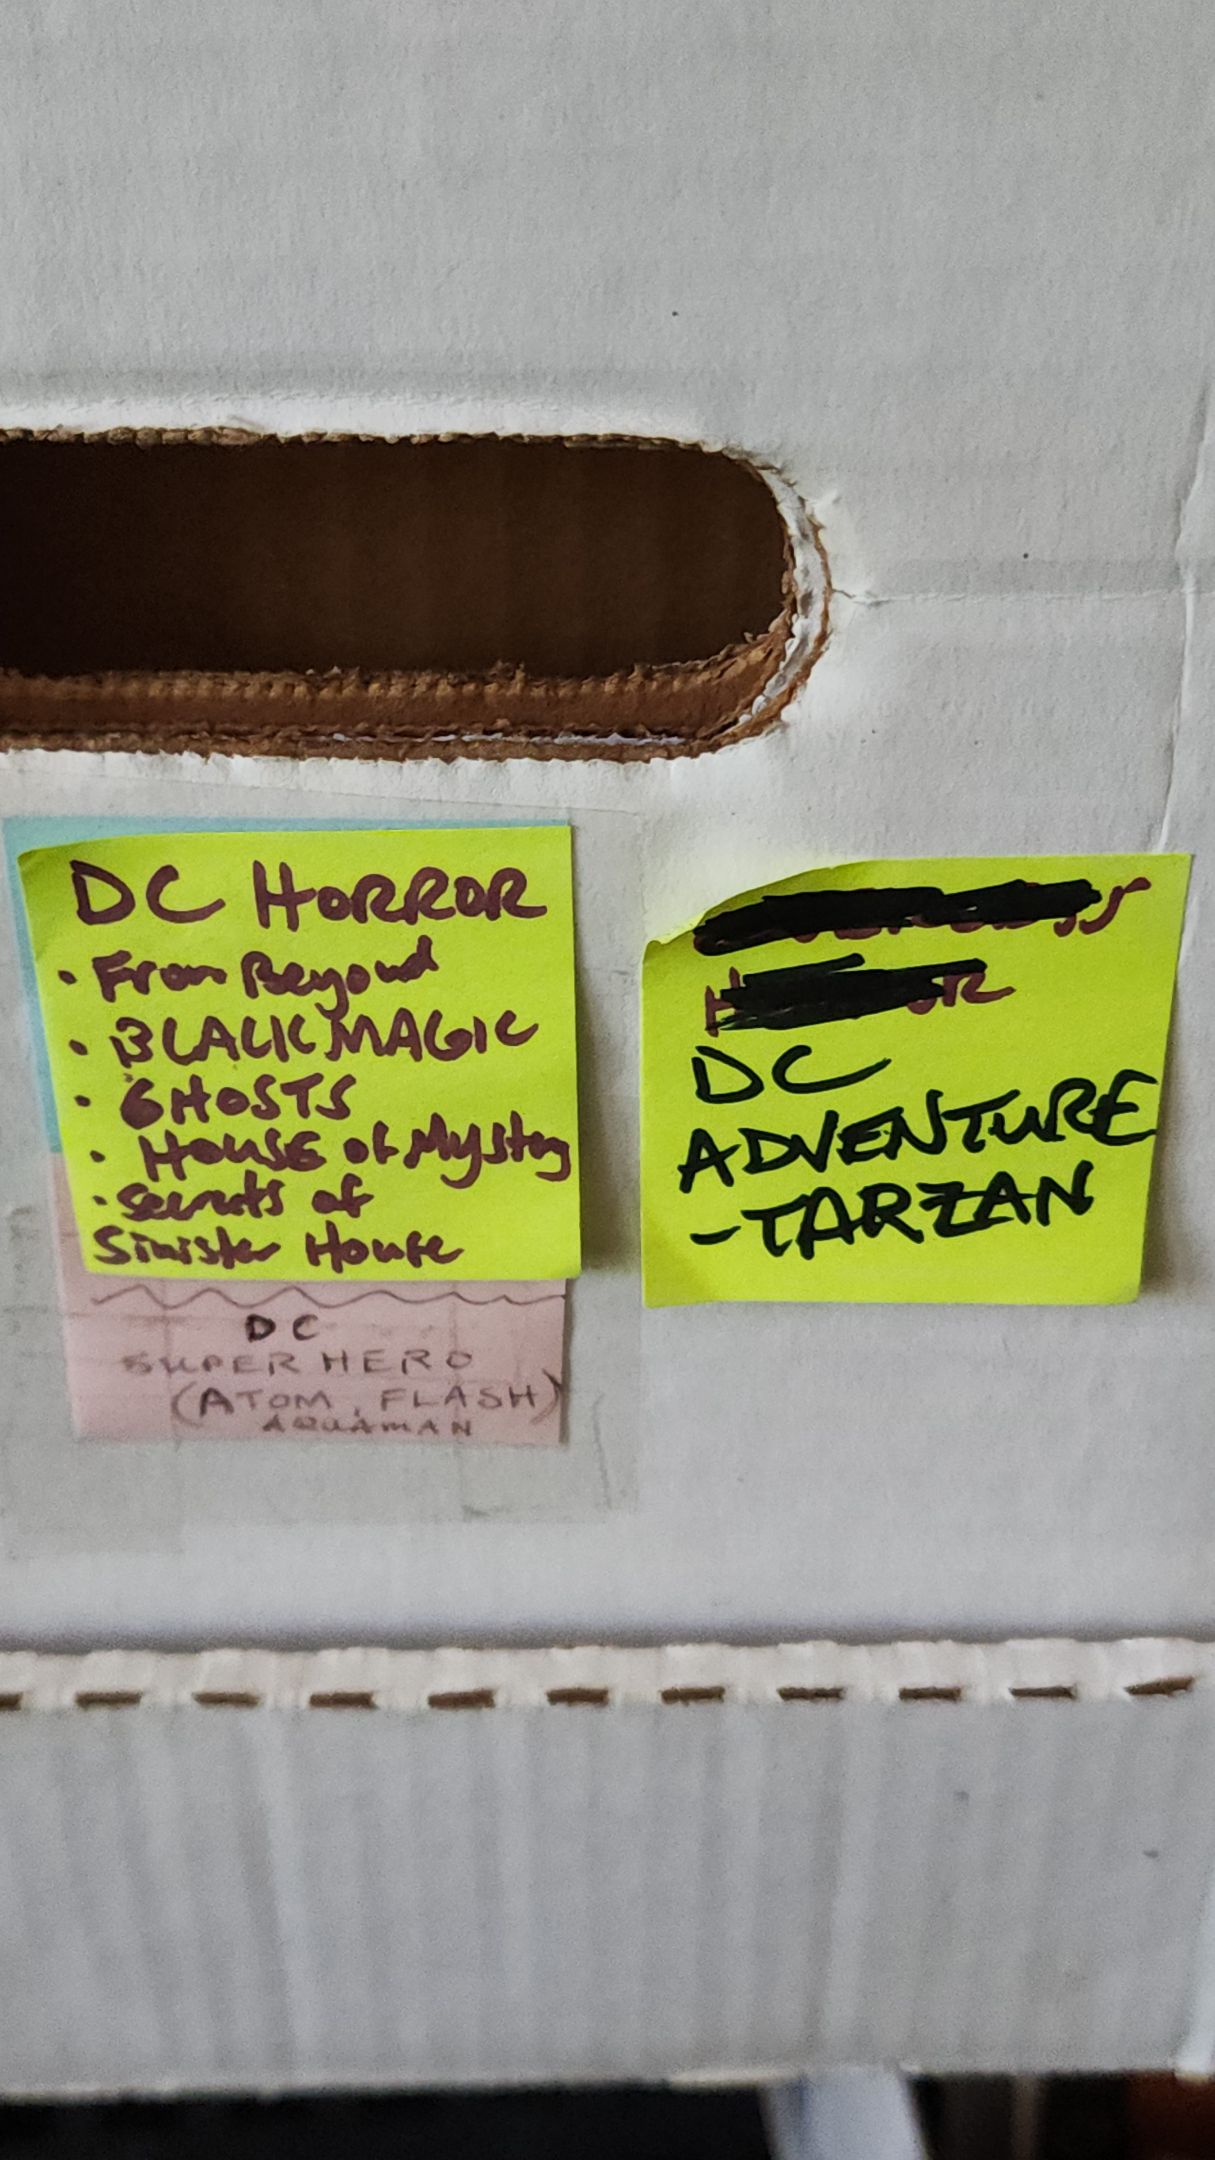 DC HORROR
• From Beyond
• BLACK MAGIC
• GHOSTS
• House of Mystery
• Secrets of
Sinister House
DC
SUPER HERO
(ATOM, FLASH)
AQUAMAN
DC
ADVENTURE
-TARZAN